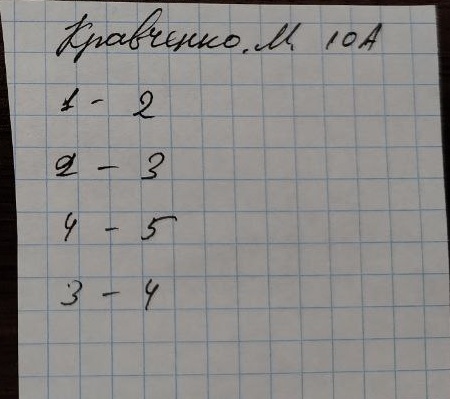 Кравченко.М 10А
1 - 2
2 - 3
4 - 5
3 - 4